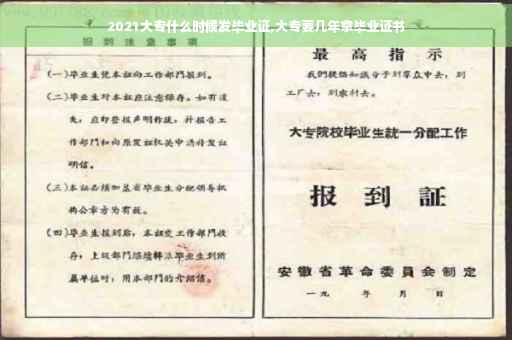 2021大专什么时候发毕业证,大专要几年拿毕业证书
报到注意事项
(一)毕业生凭本证向工作部门报到。
(二)毕业生对本证应注意保存。如有遗
失,应即登报声明作废,并报告工
作部门和向原发证机关申请补发证
明信。
(三)本证必须加盖省毕业生分配领导机
构公章方为有效。
(四)毕业生报到后,本证交工作部门收
存;上级部门继续转派毕业生到所
属单位时,用本部门的介绍信。
最高指示
我们提倡知识分子到群众中去,到
工厂去,到农村去。
大专院校毕业生统一分配工作
报到证
安徽省革命委员会制定
一九 年 月 日